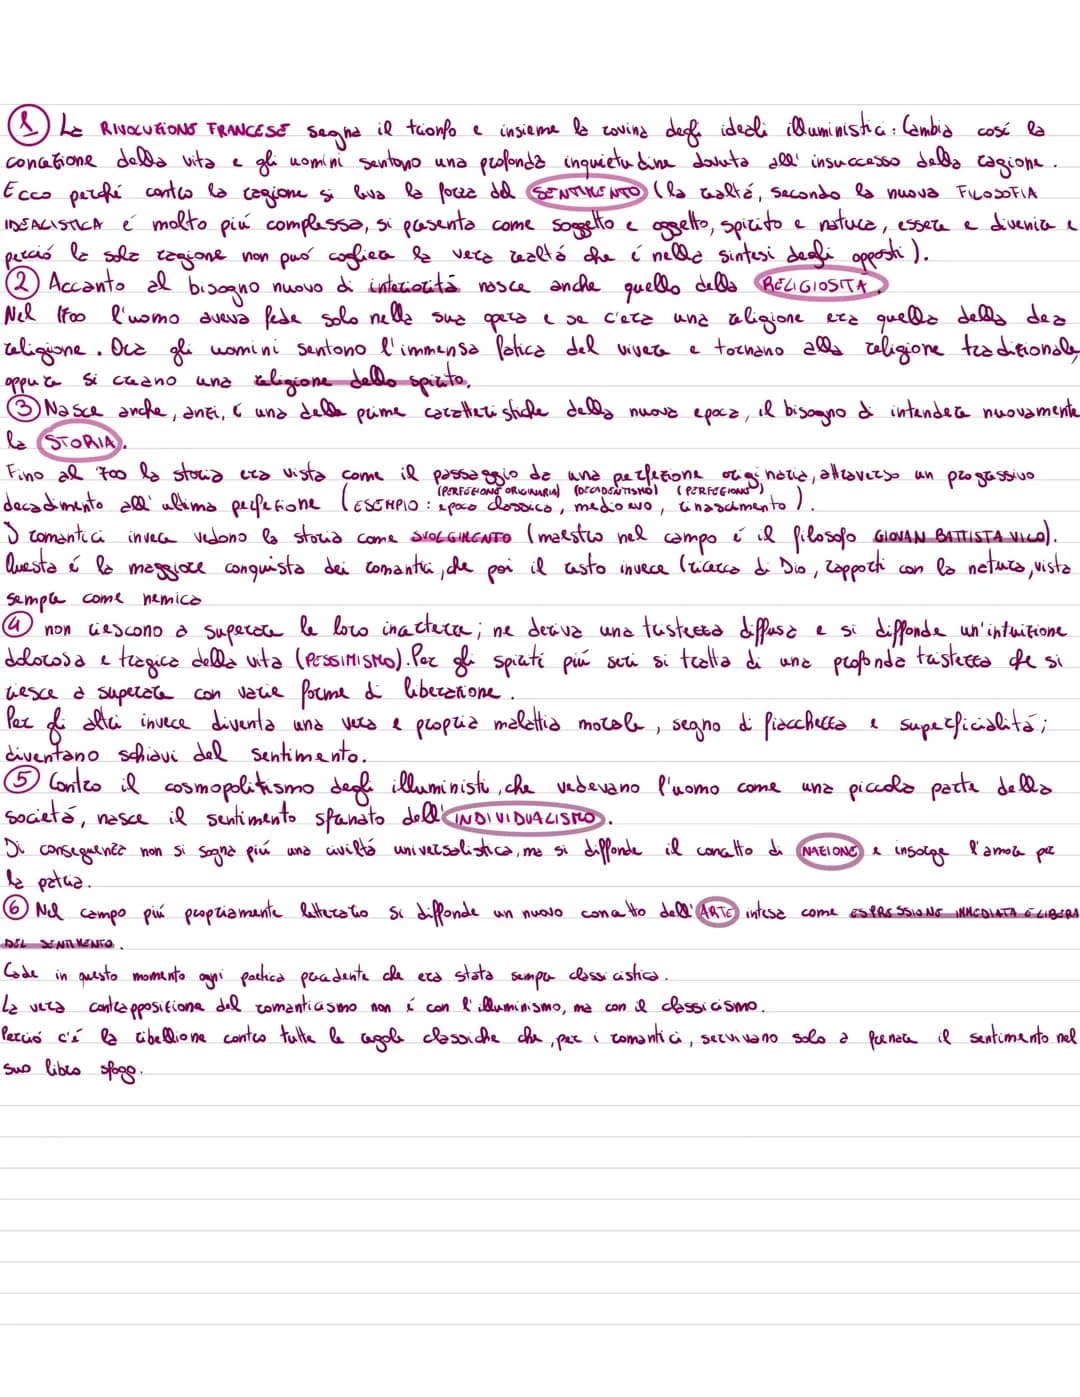 ① La RIVOLUZIONE FRANCESE segna il trionfo e insieme la rovina degli ideali illuministici. Cambia così la
concezione della vita e gli uomini sentono una profonda inquietudine dovuta all'insuccesso della ragione.
Ecco perché contro la ragione si leva la forza del SENTIMENTO (la realtá, secondo la nuova FILOSOFIA
IDEALISTICA é molto piú complessa, si presenta come soggetto e oggetto, spirito e natura, essere e divenire e
perció la sola ragione non puó cogliere la vera realtá che é nella sintesi degli opposti).
② Accanto al bisogno nuovo di interioritá nasce anche quello della RELIGIOSITÁ.
Nel 1700 l'uomo aveva fede solo nella sua opera e se c'era una religione era quella della dea
religione. Ora gli uomini sentono l'immensa fatica del vivere e tornano alla religione tradizionale
oppure si creano una religione dello spirito.
③ Nasce anche, anzi, é una delle prime caratteristiche della nuova epoca, il bisogno di intendere nuovamente
la STORIA.
Fino al 700 la storia era vista come il passaggio da una perfezione originaria, attraverso un progressivo
(PERFEZIONE ORIGINARIA) (DECADENTISMO) (PERFEZIONE)
decadimento all'ultima perfezione (ESEMPIO: epoca classica, medioevo, rinascimento).
I romantici invece vedono la storia come SVOLGIMENTO (maestro nel campo é il filosofo GIOVAN BATTISTA VICO).
Questa é la maggiore conquista dei romantici, che poi il resto invece (ricerca di Dio, rapporti con la natura, vista
sempre come nemica
④ non riescono a superare le loro incertezze; ne deriva una tristezza diffusa e si diffonde un'intuizione
dolorosa e tragica della vita (PESSIMISMO). Per gli spiriti piú seri si tratta di una profonda tristezza che si
riesce a superare con varie forme di liberazione.
Per gli altri invece diventa una vera e propria malattia morale, segno di fiacchezza e superficialitá;
diventano schiavi del sentimento.
⑤ Contro il cosmopolitismo degli illuministi, che vedevano l'uomo come una piccola parte della
societá, nasce il sentimento sfrenato dell'INDIVIDUALISMO.
Di conseguenza non si sogna piú una civiltá universalistica, ma si diffonde il concetto di NAZIONE e insorge l'amore per
la patria.
⑥ Nel campo piú propriamente letterario si diffonde un nuovo concetto dell'ARTE intesa come ESPRESSIONE IMMEDIATA E LIBERA
DEL SENTIMENTO.
Cade in questo momento ogni poetica precedente che era stata sempre classicistica.
La vera contrapposizione del romanticismo non é con l'illuminismo, ma con il classicismo.
Perció c'é la ribellione contro tutte le regole classiche che, per i romantici, servivano solo a frenare il sentimento nel
suo libro sfogo.